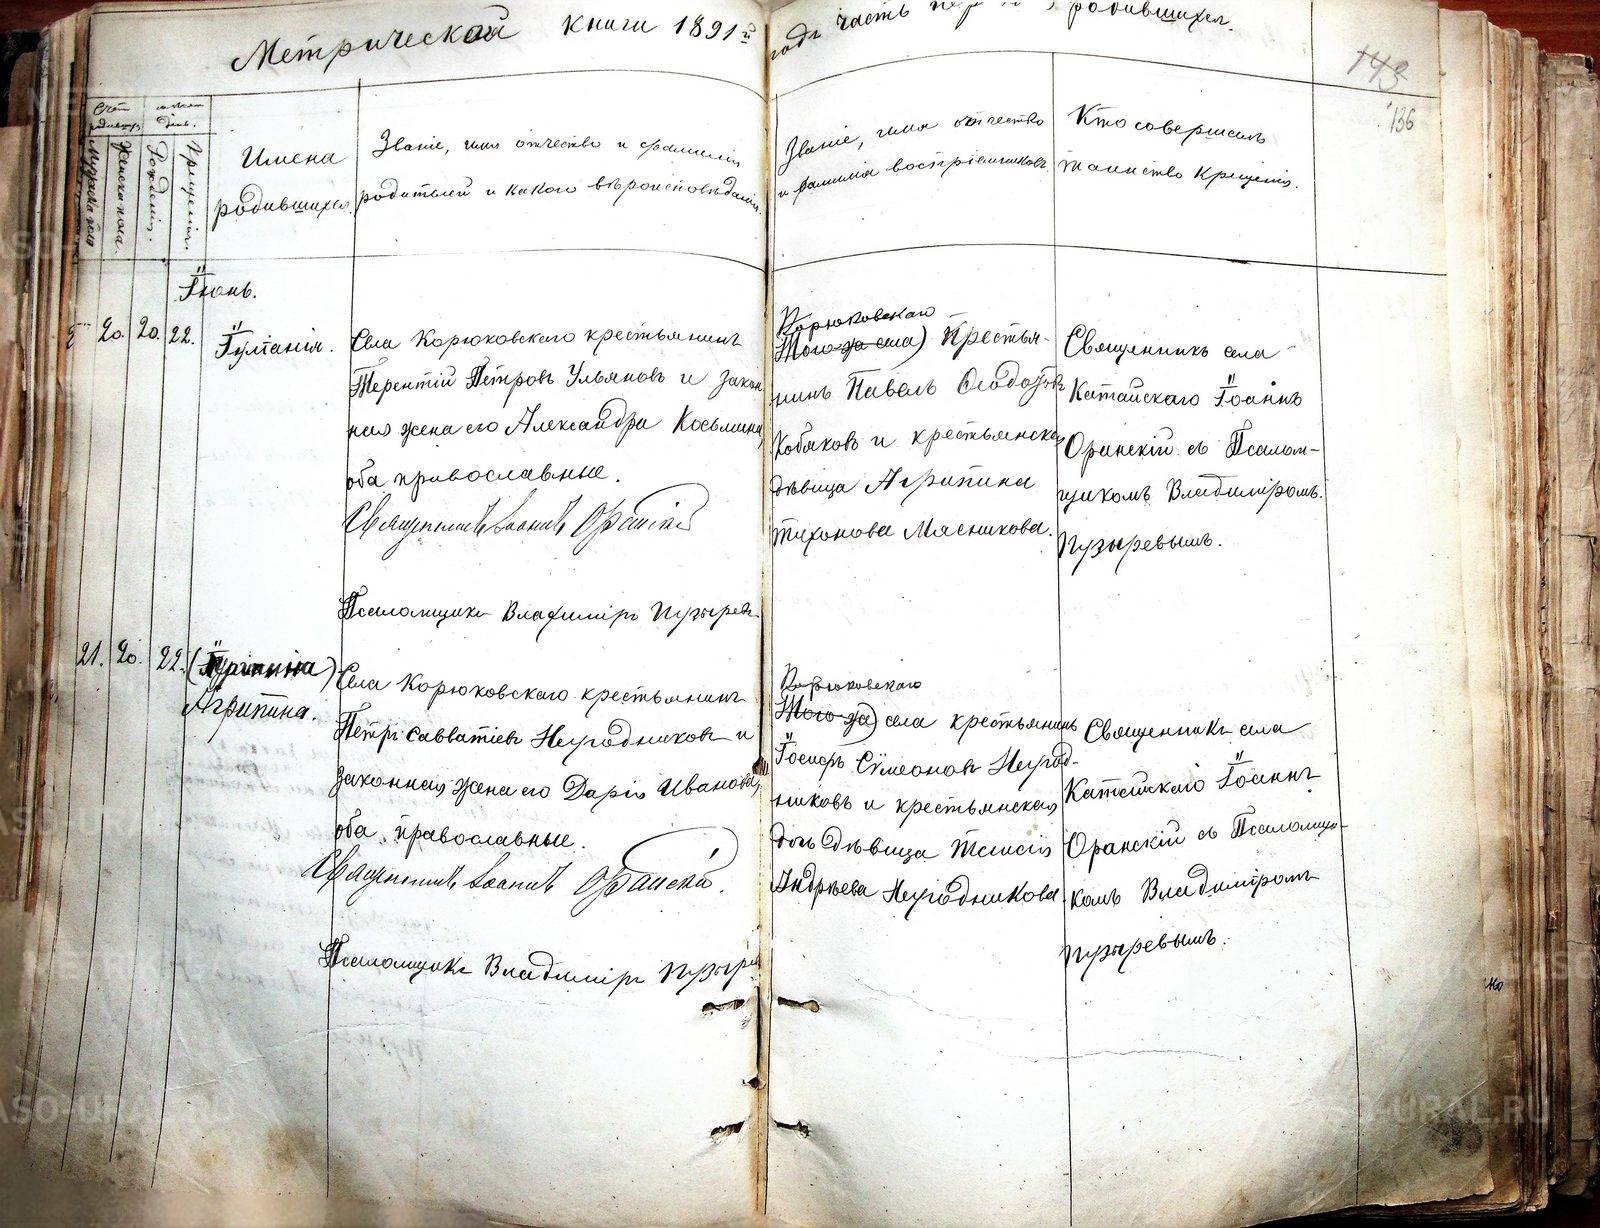 Метрической книги 1891й
годъ часть родившихся.
143
136
Счетъ родивш.
Мужска пола
Женска пола.
Рожденія.
Крещенія.
Имена
родившихся.
Званіе, имя отчество и фамилія
родителей и какого вѣроисповѣданія.
Званіе, имя отчество
и фамилія воспріемниковъ.
Кто совершалъ
таинство Крещенія.
Іюнь.
20. 20. 22.
Іуліанія.
Села Корюковскаго крестьянинъ
Терентій Петровъ Ульяновъ и закон
ная жена его Александра Косьмина,
оба православные.
Священникъ Іоаннъ Оранскій
Псаломщикъ Владиміръ Пузырев
Корюковскаго
Того-же села) Крестья-
нинъ Павелъ Ѳеодотовъ
Кобяковъ и крестьянская
дѣвица Агрипина
Тихонова Мясникова.
Священникъ села
Катайскаго Іоаннъ
Оранскій съ Псалом-
щикомъ Владиміромъ
Пузыревымъ.
21. 20. 22.
Агрипина.
Села Корюковскаго крестьянинъ
Петръ Савватіевъ Негодниковъ и
законная жена его Дарія Иванова,
оба православные.
Священникъ Іоаннъ Оранскій.
Псаломщикъ Владиміръ Пузыре
Корюковскаго
Того же) села крестьянинъ
Іосифъ Сѵмеоновъ Негод-
никовъ и крестьянская
дочь дѣвица Таисія
Андреева Негодникова.
Священникъ села
Катайскаго Іоаннъ
Оранскій съ Псаломщи-
комъ Владиміромъ
Пузыревымъ.